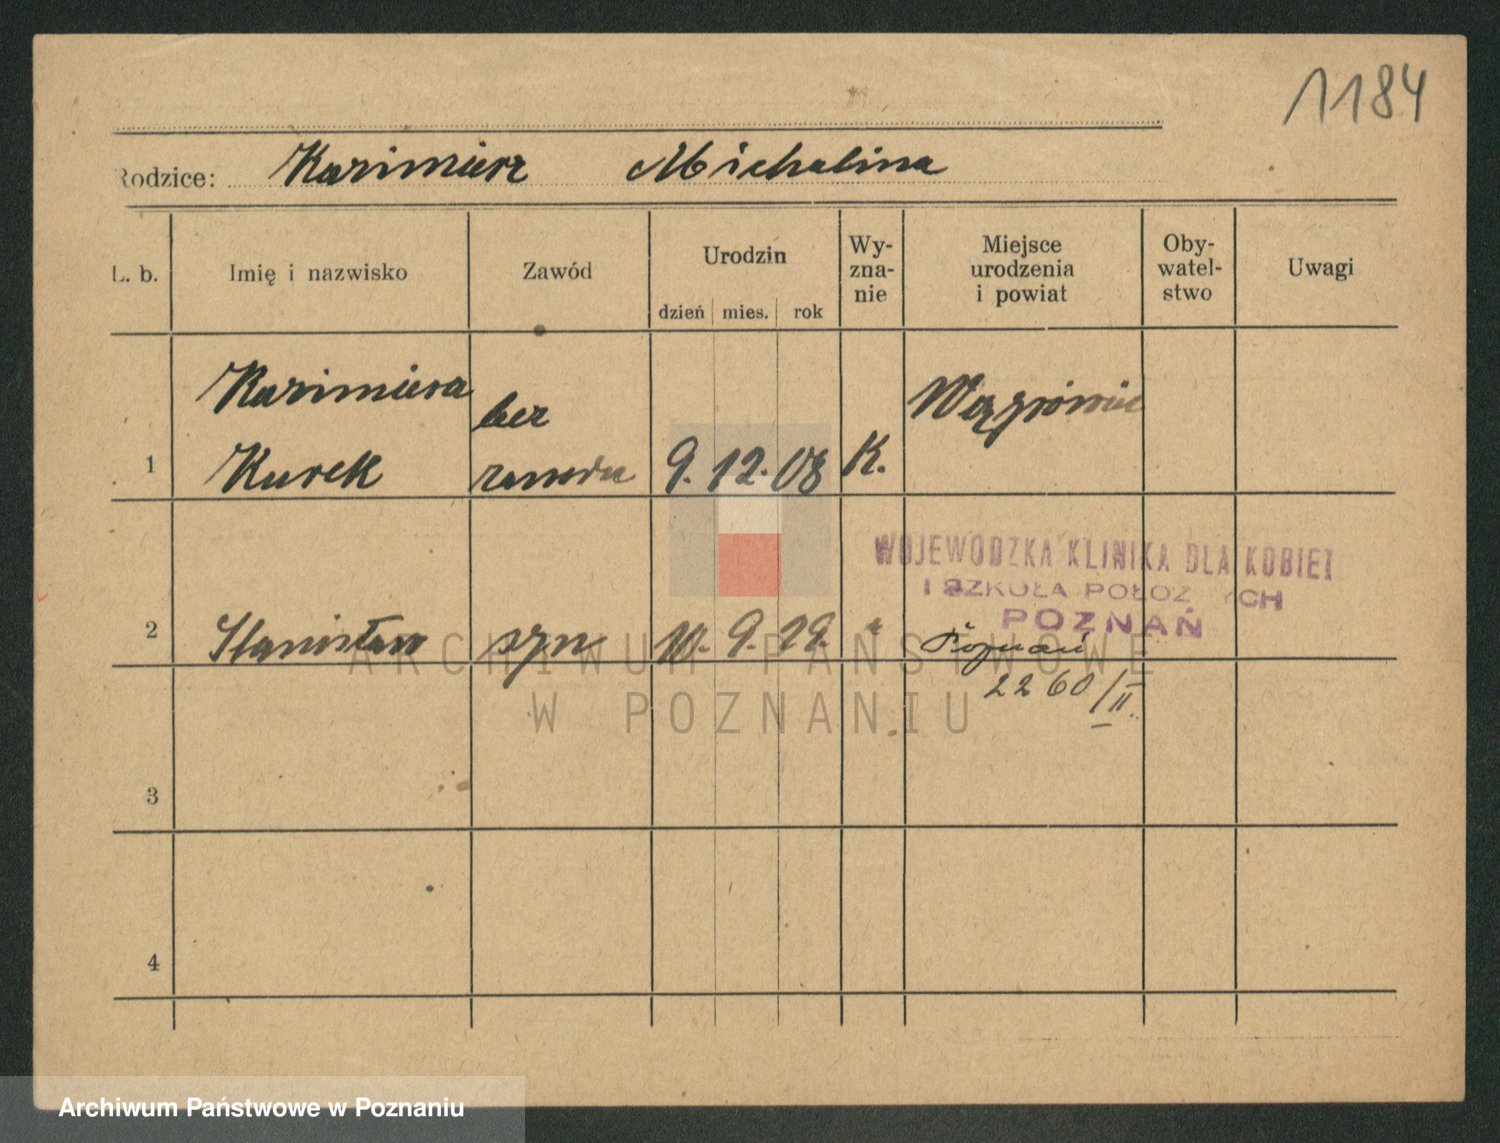 1184
Rodzice: Kazimierz Michalina
L. b. Imię i nazwisko Zawód Urodzin dzień mies. rok Wy-zna-nie Miejsce urodzenia i powiat Oby-watel-stwo Uwagi
Kazimiera bez Wągrówiec
1 Kurek zawodu 9. 12. 08 K.
WOJEWODZKA KLINIKA DLA KOBIET
I SZKOŁA POŁOŻ YCH
POZNAŃ
2 Stanisław syn 10. 9. 29. " Poznań
2260/II.
3
4
ARCHIWUM PAŃSTWOWE
W POZNANIU
Archiwum Państwowe w Poznaniu